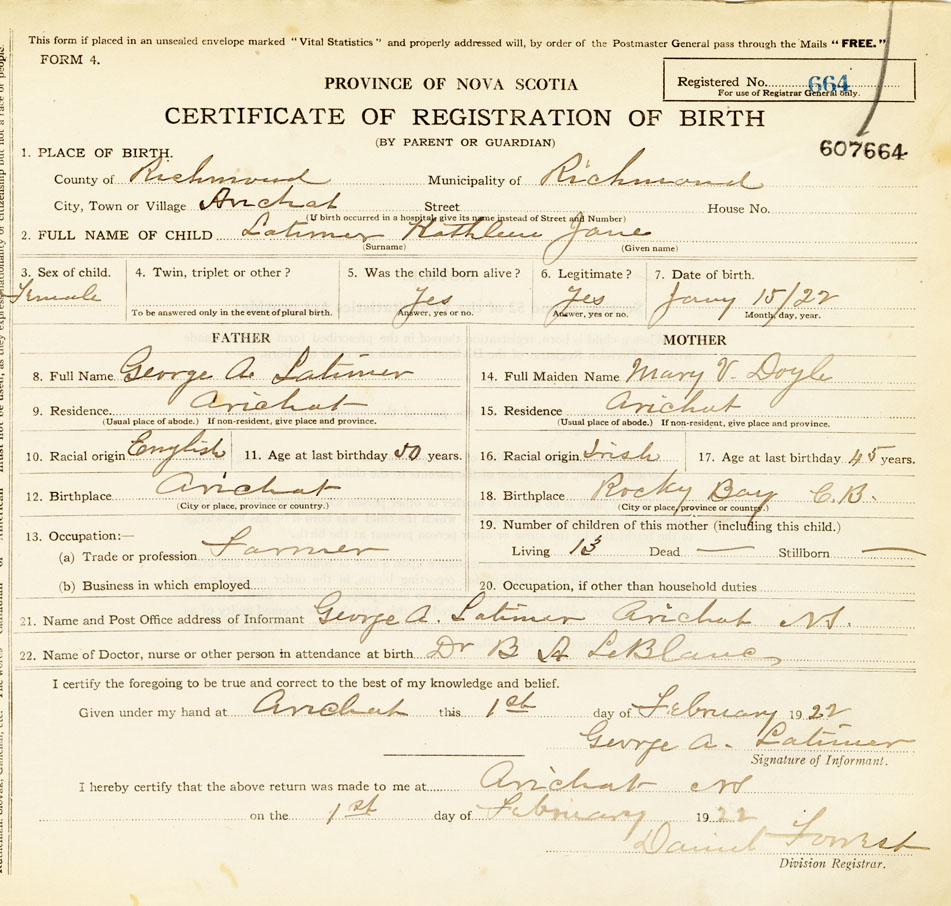 This form if placed in an unsealed envelope marked "Vital Statistics" and properly addressed will, by order of the Postmaster General pass through the Mails "FREE."
FORM 4.
PROVINCE OF NOVA SCOTIA
Registered No. 664
For use of Registrar General only.
CERTIFICATE OF REGISTRATION OF BIRTH
(BY PARENT OR GUARDIAN)
607664
1. PLACE OF BIRTH.
County of Richmond Municipality of Richmond
City, Town or Village Arichat Street House No.
(If birth occurred in a hospital, give its name instead of Street and Number)
2. FULL NAME OF CHILD Latimer Kathleen Jane
(Surname) (Given name)
3. Sex of child. 4. Twin, triplet or other? 5. Was the child born alive? 6. Legitimate? 7. Date of birth.
Female Yes Yes Jany 15/22
To be answered only in the event of plural birth. Answer, yes or no. Answer, yes or no. Month, day, year.
FATHER MOTHER
8. Full Name George A. Latimer 14. Full Maiden Name Mary V. Doyle
9. Residence Arichat 15. Residence Arichat
(Usual place of abode.) If non-resident, give place and province. (Usual place of abode.) If non-resident, give place and province.
10. Racial origin English 11. Age at last birthday 50 years. 16. Racial origin Irish 17. Age at last birthday 45 years.
12. Birthplace Arichat 18. Birthplace Rocky Bay C.B.
(City or place, province or country.) (City or place, province or country.)
13. Occupation:— 19. Number of children of this mother (including this child.)
(a) Trade or profession Farmer Living 13 Dead — Stillborn —
(b) Business in which employed 20. Occupation, if other than household duties
21. Name and Post Office address of Informant George A. Latimer Arichat NS.
22. Name of Doctor, nurse or other person in attendance at birth Dr B A LeBlanc
I certify the foregoing to be true and correct to the best of my knowledge and belief.
Given under my hand at Arichat this 1st day of February 1922
George A. Latimer
Signature of Informant.
I hereby certify that the above return was made to me at Arichat NS
on the 1st day of February 1922
Daniel Forrest
Division Registrar.